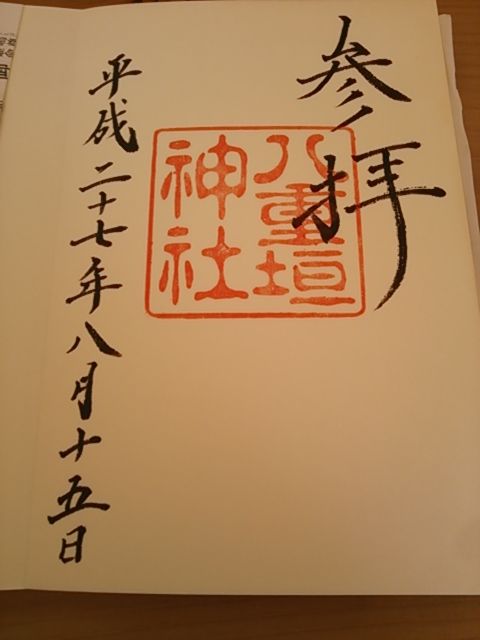 参拝
八重垣
神社
平成二十七年八月十五日